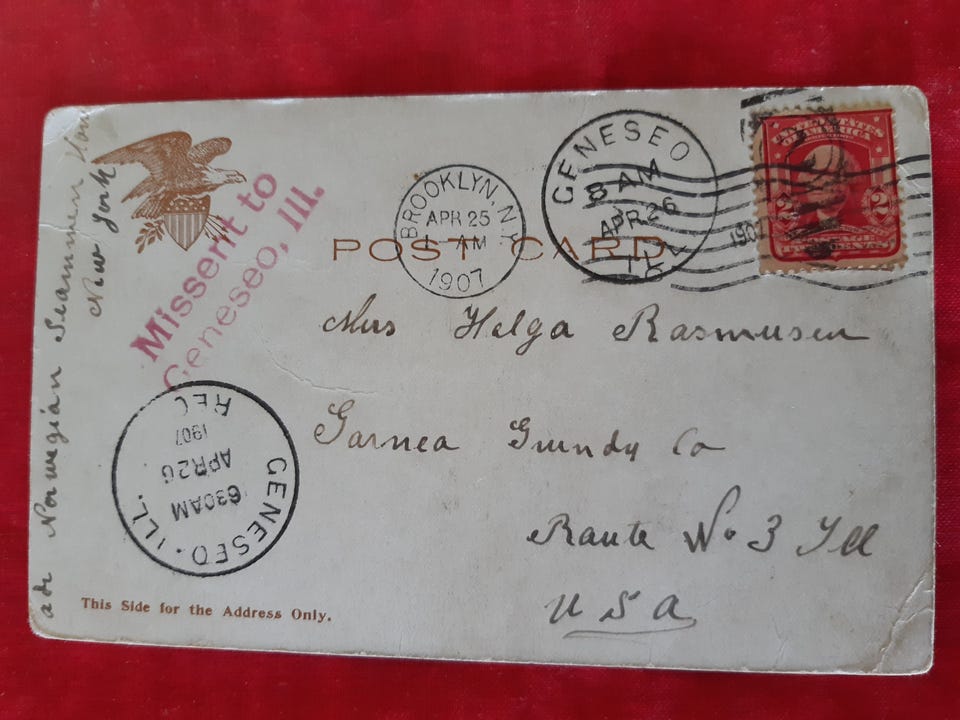 POST CARD
BROOKLYN, N.Y.
APR 25
AM
1907
GENESEO
8 AM
APR 26
ILL
UNITED STATES
OF AMERICA
2 2
Missent to
Geneseo, Ill.
Mrs Helga Rasmusen
Garnea Grundy Co
Raute No 3 Ill
USA
adr Norwegian Seammen
New York
GENESEO. ILL.
630AM
APR 26
1907
REC
This Side for the Address Only.